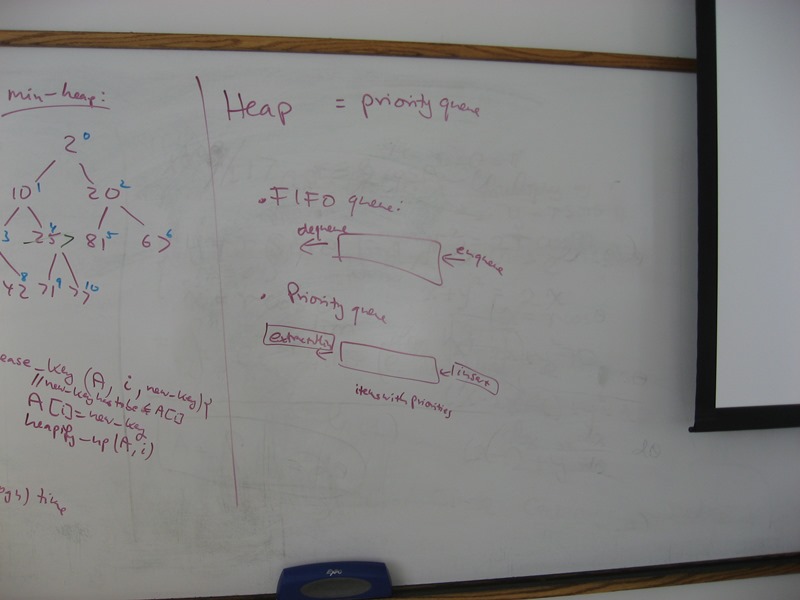 min-heap:
2 0
10 1 20 2
3 25 4 81 5 67 6
42 8 71 9 77 10
ease_key (A, i, new_key) {
// new_key has to be ≤ A[i]
A[i] = new_key
heapify_up (A, i)
ogn) time
Heap = priority queue
• FIFO queue:
dequeue
enqueue
• Priority queue
extractMin
insert
items with priorities
EXPO